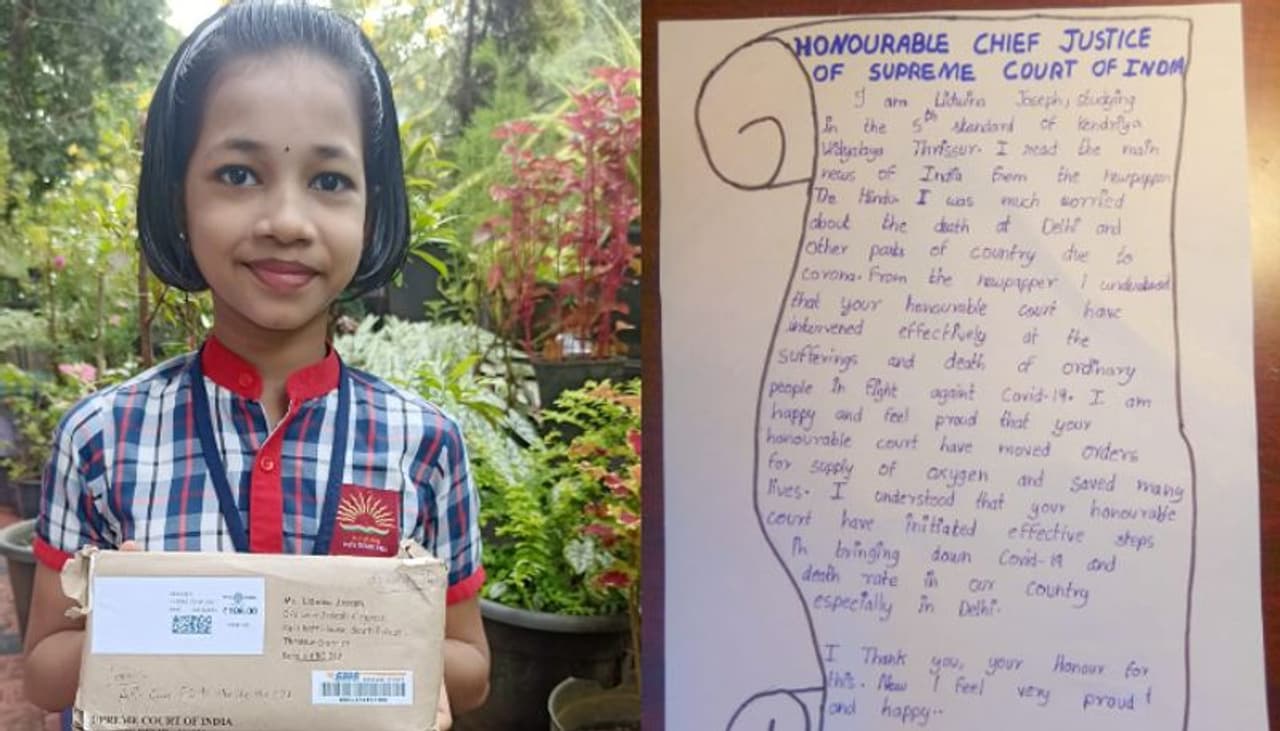 HONOURABLE CHIEF JUSTICE
OF SUPREME COURT OF INDIA
I am Lidwina Joseph, studying
in the 5th standard of Kendriya
Vidyalaya Thrissur. I read the main
news of India from the newpapper
The Hindu. I was much worried
about the death at Delhi and
other parts of country due to
corona. From the newpapper I understand
that your honourable court have
intervened effectively at the
sufferings and death of ordinary
people in flight against Covid-19. I am
happy and feel proud that your
honourable court have moved orders
for supply of oxygen and saved many
lives. I understood that your honourable
court have initiated effective steps
in bringing down Covid-19 and
death rate in our country
especially in Delhi.
I Thank you, your Honour for
this. Now I feel very proud
and happy..
Joseph
Thrissur
UPREME COURT OF INDIA